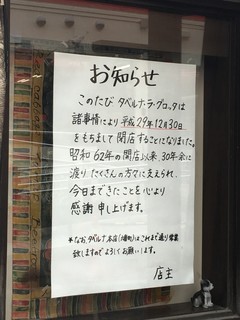 お知らせ
このたび タベルナ・ラ・グロッタは
諸事情により平成29年12月30日
をもちまして閉店することになりました。
昭和62年の開店以来 30年余に
渡り たくさんの方々に支えられ、
今日まできたことを心より
感謝申し上げます。
*なお、タベルナ本店(堺町)はこれまで通り営業
致しますのでよろしくお願いします。
店主